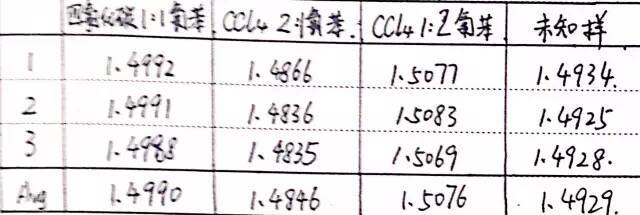 四氯化碳1:1氯苯. CCl4 2:1氯苯. CCl4 1:2氯苯 未知样
1 1.4992 1.4866 1.5077 1.4934.
2 1.4991 1.4836 1.5083 1.4925
3 1.4988 1.4835 1.5069 1.4928.
Avg 1.4990 1.4846 1.5076 1.4929.